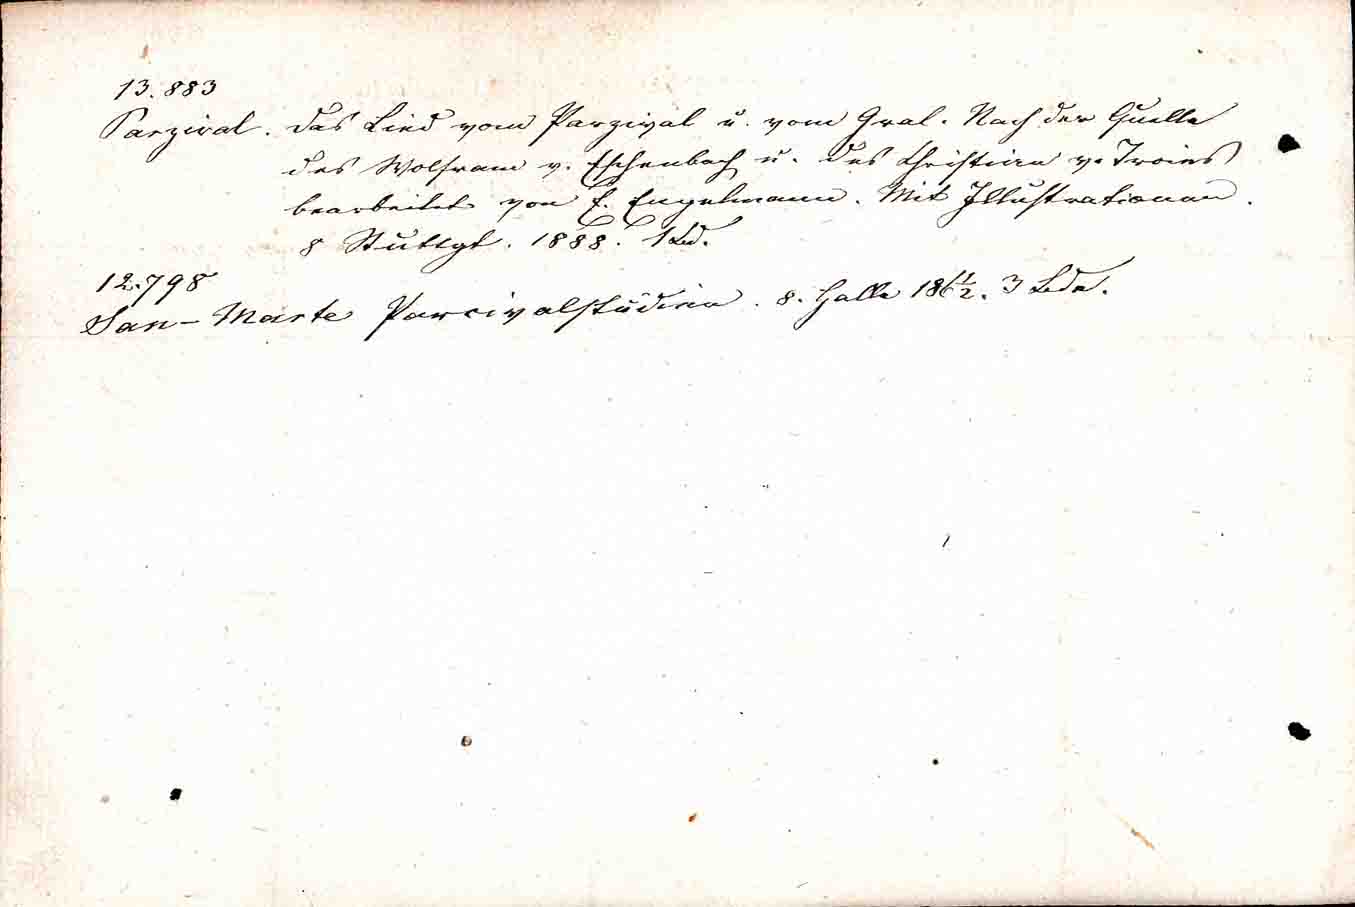 13.883
Parzival. Das Lied vom Parzival u. vom Gral. Nach der Quelle
des Wolfram v. Eschenbach u. des Christian v. Troies
bearbeitet von E. Engelmann. Mit Illustrationen.
8 Stuttgt. 1888. 1 Bd.
12.798
San-Marte Parcivalstudien. 8. Halle 186 1/2. 3 Bde.